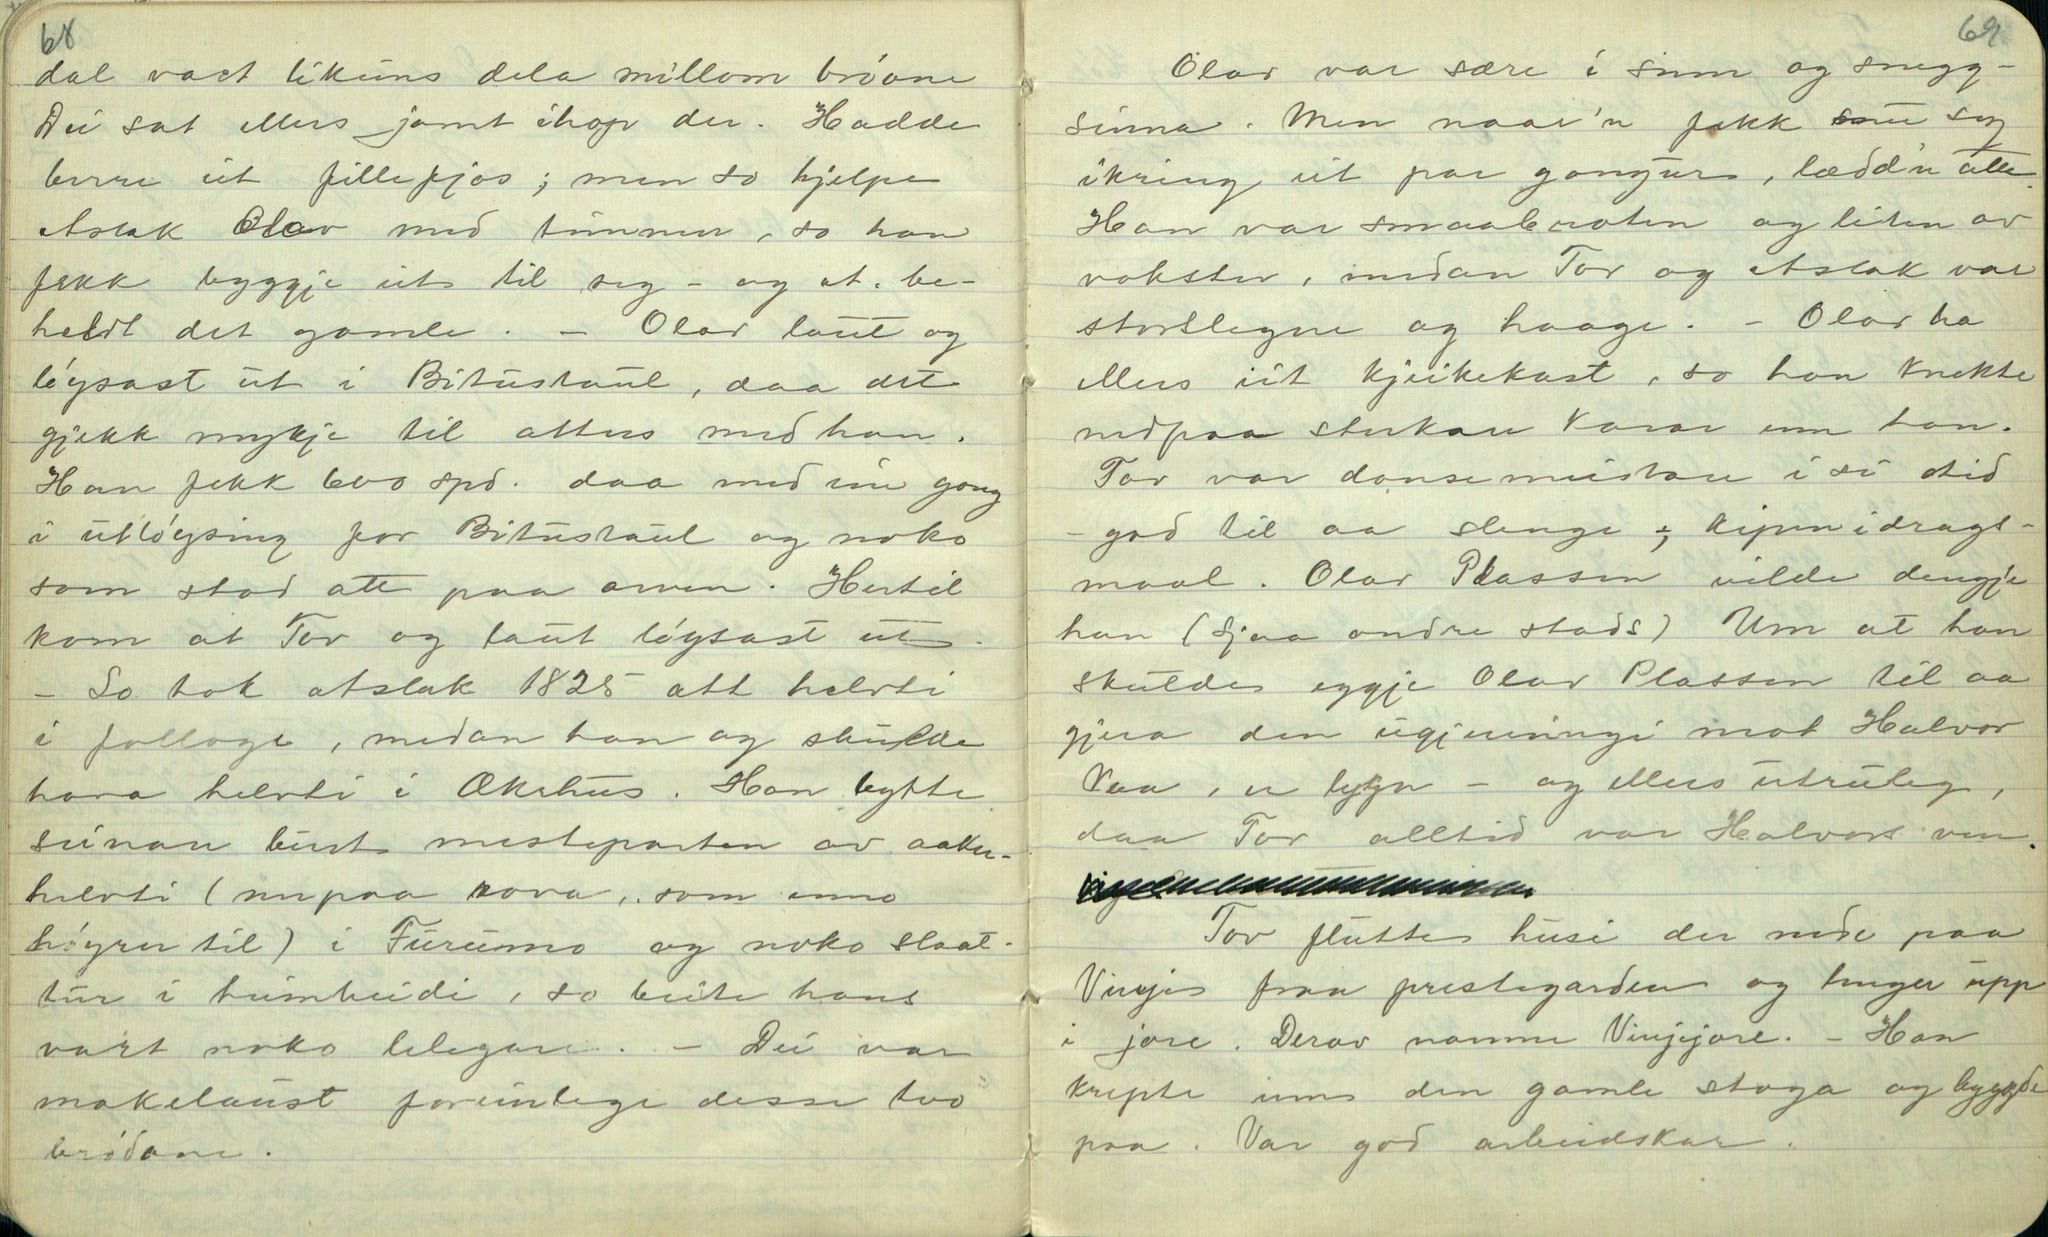 68
dal vart likeins dela millom bröane
Dei sat ellers jamt ihop der. Hadde
berre eit fillefjos; men so hjelpe
Aslak Olav med timmer, so han
fekk byggje eit til seg - og A. be-
heldt det gamle. - Olav laut og
löysast ut i Bitustaul, daa det
gjekk mykje til atters med han.
Han fekk 600 spd. daa med ein gong
i utlöysing for Bitustaul og noko
som stod att paa arven. Hertil
kom at Tov og laut löysast ut.
- So tok Aslak 1825 att helvti
i folloge, medan han og skulde
hava helvti i Økrhus. Han bytte
seinare burt mesteparten av aaker-
helvti (nepaa rova, som enno
höyrer til) i Furumo og noko slaat-
tur i heimheidi, so beite hans
vart noko lelegare. - Dei var
makelaust foreinlege desse two
brödane.
69
Olav var sære i sinn og snegg-
sinna. Men naar'n fekk snu seg
ikring eit par gongur, lædd'n atte.
Han var smaabroten og liten av
vokster, medan Tov og Aslak var
storslegne og haage. - Olav ha
ellers eit kjeikekast, so han knekte
nedpaa sterkare karar enn han.
Tov var dansemeistare i si tid
- god til aa slenge; kipen i drags-
maal. Olav Plassen vilde dengje
han (sjaa andre stads) Um at han
skulde eggje Olav Plassen til aa
gjera den ugjerningi mot Halvor
Vaa, er lygn - og ellers utruleg,
daa Tov alltid var Halvors ven.
Tov flutte husi der nede paa
Vinje fraa prestegarden og lenger upp
i jore. Derav namne Vinjejore. - Han
krepte um den gamle stoga og bygde
paa. Var god arbeidskar.